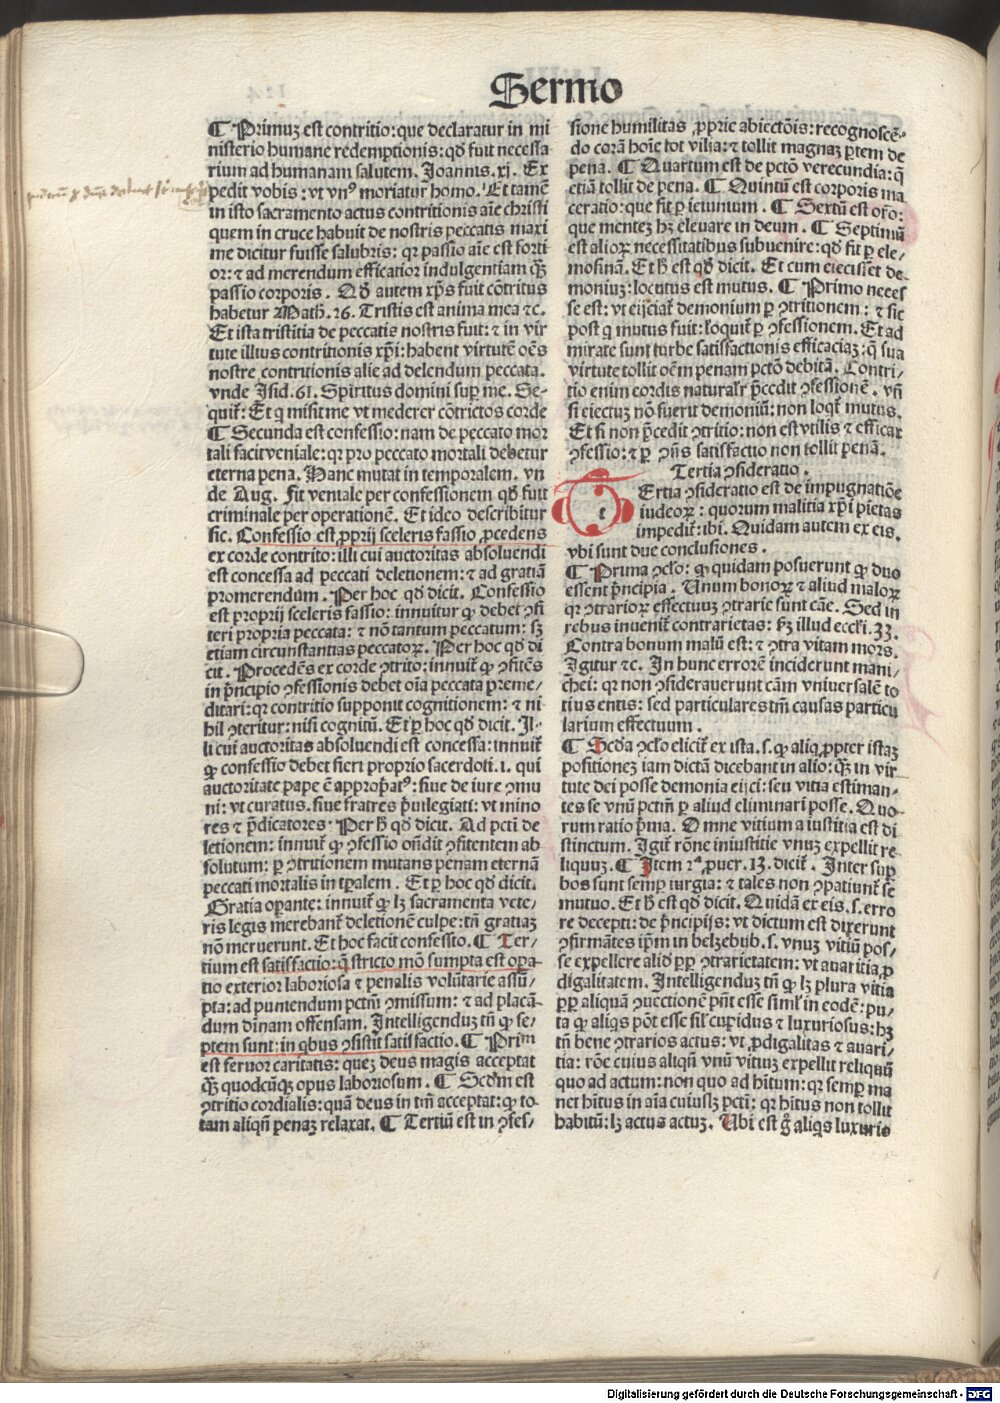 Sermo
¶ Primuꝫ est contritio: que declaratur in mi
nisterio humane redemptionis: qđ fuit necessa
rium ad humanam salutem. Joannis. xj. Ex
pedit vobis: vt vnꝰ moriatur homo. Et tamē
in isto sacramento actus contritionis aīe christi
quem in cruce habuit de nostris peccatis maxi
me dicitur fuisse salubris: qꝛ passio aīe est forti
or: ⁊ ad merendum efficatior indulgentiam qꝫ̄
passio corporis. Qđ autem xp̄s fuit cōtritus
habetur Math. 26. Tristis est anima mea ⁊c.
Et ista tristitia de peccatis nostris fuit: ⁊ in vir
tute illius contritionis xp̄i: habent virtutē oēs
nostre contritionis alie ad delendum peccata.
vnde Isid. 61. Spiritus domini suꝑ me. Se-
quiť: Et q̄ misit me vt mederer cōtrictos corde
¶ Secunda est confessio: nam de peccato mor
tali facit veniale: qꝛ pro peccato mortali debetur
eterna pena. Hanc mutat in temporalem. vn
de Aug. Fit veniale per confessionem qđ fuit
criminale per operationē. Et ideo describitur
sic. Confessio est ꝓprij sceleris fassio ꝓcedens
ex corde contrito: illi cui auctoritas absoluendi
est concessa ad peccati deletionem: ⁊ ad gratiā
promerendum. Per hoc qđ dicit. Confessio
est proprij sceleris fassio: innuitur ꝙ debet ꝯfi
teri propria peccata: ⁊ nō tantum peccatum: sꝫ
etiam circunstantias peccatoꝝ. Per hoc qđ di
cit. Procedēs ex corde ꝯtrito: innuiť ꝙ ꝯfitēs
in p̄ncipio ꝯfessionis debet oīa peccata preme/
ditari: qꝛ contritio supponit cognitionem: ⁊ ni
hil ꝯteritur: nisi cognitū. Et ꝑ hoc qđ dicit. Il-
li cui auctoritas absoluendi est concessa: innuiť
ꝙ confessio debet fieri proprio sacerdoti. i. qui
auctoritate pape ē appropͥatꝰ: siue de iure ꝯmu
ni: vt curatus. siue fratres p̄uilegiati: vt mino
res ⁊ p̄dicatores. Per ħ qđ dicit. Ad pcti de
letionem: innuiť ꝙ ꝯfessio oñdit ꝯfitentem ab
solutum: ꝑ ꝯtritionem mutans penam eternā
peccati mortalis in tꝑalem. Et ꝑ hoc qđ dicit.
Gratia oꝑante: innuiť ꝙ lꝫ sacramenta vete/
ris legis merebanť deletionē culpe: tn̄ gratiaꝫ
nō meruerunt. Et hoc facit confessio. ¶ Ter/
tium est satisfactio: q̄ stricto mō sumpta est oꝑa-
tio exterior laboriosa ⁊ penalis volūtarie assū/
pta: ad puniendum pctm̄ ꝯmissum: ⁊ ad placā-
dum diuinam offensam. Intelligenduꝫ tn̄ ꝙ se/
ptem sunt: in qͥbus ꝯsistit satisfactio. ¶ Prim
est feruor caritatis: queꝫ deus magis acceptat
qꝫ̄ quodcūqꝫ opus laboriosum. ¶ Scđm est
ꝯtritio cordialis: quā deus in tm̄ acceptat: ꝙ to-
tam aliqn̄ penaꝫ relaxat. ¶ Tertiū est in ꝯfes/
sione humilitas ꝓprie abiectōis: recognoscē-
do corā hoīe tot vilia: ⁊ tollit magnaꝫ ꝑtem de
pena. ¶ Quartum est de pctō verecundia: q̄
etiā tollit de pena. ¶ Quintū est corporis ma
ceratio: que fit ꝑ ieiunium. ¶ Sextū est orō:
que mentez hꝫ eleuare in deum. ¶ Septimū
est alioꝝ necessitatibus subuenire: qđ fit ꝑ ele/
mosinā. Et ħ est qđ dicit. Et cum eiecisset de-
moniuꝫ: locutus est mutus. ¶ Primo neces
se est: vt eijciať demonium ꝑ ꝯtritionem: ⁊ sic
post q̄ mutus fuit: loquiť ꝑ ꝯfessionem. Et ad
mirate sunt turbe satisfactionis efficaciaꝫ: q̄ sua
virtute tollit oēm penam pctō debitā. Contri/
tio enim cordis naturalr̄ p̄cedit ꝯfessionē. vn̄
si eiectuꝫ nō fuerit demoniū: non loqť mutus.
Et si non p̄cedit ꝯtritio: non est vtilis ⁊ efficax
ꝯfessio: ⁊ ꝑ ꝯn̄s satisfactio non tollit penā.
Tertia ꝯsideratio.
t
Ertia ꝯsideratio est de impugnatiōe
iudeoꝝ: quorum malitia xp̄i pietas
impediť: ibi. Quidam autem ex eis.
vbi sunt due conclusiones.
¶ Prima ꝯclo: ꝙ quidam posuerunt ꝙ duo
essent p̄ncipia. Unum bonoꝝ ⁊ aliud maloꝝ
qꝛ ꝯtrarioꝝ effectuuꝫ ꝯtrarie sunt cāe. Sed in
rebus inueniť contrarietas: ẜm illud eccľi. 33.
Contra bonum malū est: ⁊ ꝯtra vitam mors.
Igitur ⁊c. In hunc errorē inciderunt mani/
chei: qꝛ non ꝯsiderauerunt cām vniuersalē to
tius entis: sed particulares tm̄ causas particu
larium effectuum.
¶ Scđa ꝯclo eliciť ex ista. s. ꝙ aliq̄ ꝓpter istaꝫ
positionez iam dictā dicebant in alio: qꝫ̄ in vir
tute dei posse demonia eijci: seu vitia estiman-
tes se vnū pctm̄ ꝑ aliud eliminari posse. Quo-
rum ratio p̄ma. Omne vitium a iustitia est di
stinctum. Igiť rōne iniustitie vnuꝫ expellit re-
liquuꝫ. ¶ Item 2ᵃ ꝓuer. 13. diciť. Inter suꝑ
bos sunt semꝑ iurgia: ⁊ tales non ꝯpatiunť se
mutuo. Et ħ est qđ dicit. Quidā ex eis. s. erro
re decepti: de p̄ncipijs: vt dictum est dixerunt
ꝯfirmātes ip̄m in belzebub. s. vnuꝫ vitiū pos/
se expellere aliđ ꝓpꝑ ꝯtrarietatem: vt auaritia ꝓ
digalitatem. Intelligenduꝫ tn̄ ꝙ lꝫ plura vitia
ꝓpꝑ aliquā ꝯuectionē pn̄t esse simľ in eodē: pu/
ta ꝙ aliqͥs pōt esse siľ cupidus ⁊ luxuriosus: hꝫ
tn̄ bene ꝯtrarios actus: vt ꝓdigalitas ⁊ auari/
tia: rōe cuius aliqn̄ vnū vituꝫ expellit reliquū
quo ad actum: non quo ad hītum: qꝛ semꝑ ma
net hītus in aīa cuiuslꝫ pcti: qꝛ hītus non tollit
habitū: lꝫ actus actuꝫ. Ubi est g̊ aliqͥs luxurio
Digitalisierung gefördert durch die Deutsche Forschungsgemeinschaft - DFG